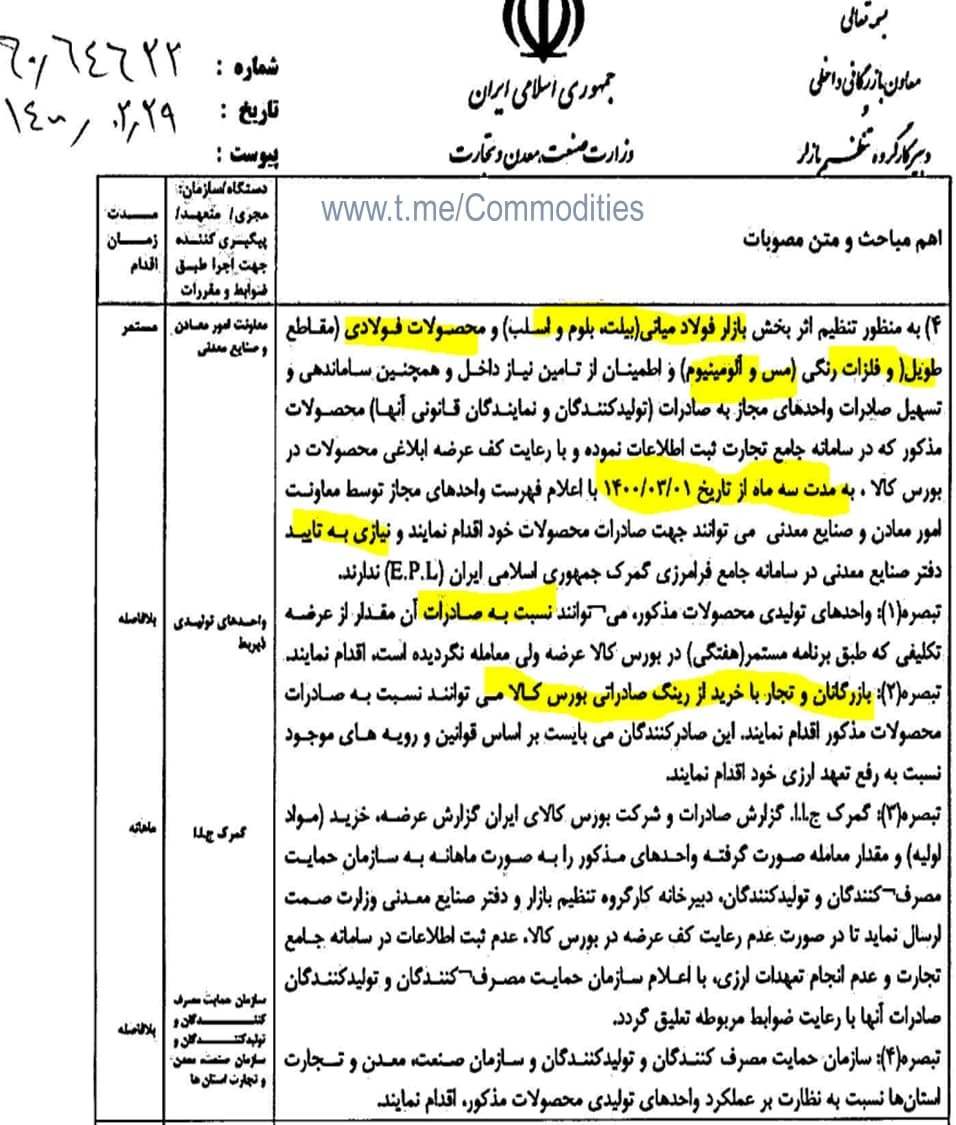 بسمه تعالی
معاون بازرگانی داخلی
و
دبیر کارگروه تنظیم بازار
جمهوری اسلامی ایران
وزارت صنعت، معدن و تجارت
شماره : ۶۰/۶۴۶۲۲
تاریخ : ۱۴۰۰/۰۲/۲۹
پیوست :
www.t.me/Commodities
اهم مباحث و متن مصوبات
دستگاه/سازمان:
مجری/ متعهد/
پیگیری کننده
جهت اجرا طبق
ضوابط و مقررات
مدت
زمان
اقدام
۴) به منظور تنظیم اثر بخش بازار فولاد میانی(بیلت، بلوم و اسلب) و محصولات فولادی (مقاطع
طویل( و فلزات رنگی (مس و آلومینیوم) و اطمینان از تامین نیاز داخل و همچنین ساماندهی و
تسهیل صادرات واحدهای مجاز به صادرات (تولیدکنندگان و نمایندگان قانونی آنها) محصولات
مذکور که در سامانه جامع تجارت ثبت اطلاعات نموده و با رعایت کف عرضه ابلاغی محصولات در
بورس کالا ، به مدت سه ماه از تاریخ ۱۴۰۰/۰۳/۰۱ با اعلام فهرست واحدهای مجاز توسط معاونت
امور معادن و صنایع معدنی می توانند جهت صادرات محصولات خود اقدام نمایند و نیازی به تایید
دفتر صنایع معدنی در سامانه جامع فرامرزی گمرک جمهوری اسلامی ایران (E.P.L) ندارند.
تبصره(۱): واحدهای تولیدی محصولات مذکور، می¬توانند نسبت به صادرات آن مقدار از عرضه
تکلیفی که طبق برنامه مستمر(هفتگی) در بورس کالا عرضه ولی معامله نگردیده است، اقدام نمایند.
تبصره(۲): بازرگانان و تجار با خرید از رینگ صادراتی بورس کالا می توانند نسبت به صادرات
محصولات مذکور اقدام نمایند. این صادرکنندگان می بایست بر اساس قوانین و رویه های موجود
نسبت به رفع تعهد ارزی خود اقدام نمایند.
تبصره(۳): گمرک ج.ا.ا. گزارش صادرات و شرکت بورس کالای ایران گزارش عرضه، خرید (مواد
اولیه) و مقدار معامله صورت گرفته واحدهای مذکور را به صورت ماهانه به سازمان حمایت
مصرف¬کنندگان و تولیدکنندگان، دبیرخانه کارگروه تنظیم بازار و دفتر صنایع معدنی وزارت صمت
ارسال نماید تا در صورت عدم رعایت کف عرضه در بورس کالا، عدم ثبت اطلاعات در سامانه جامع
تجارت و عدم انجام تعهدات ارزی، با اعلام سازمان حمایت مصرف¬کنندگان و تولیدکنندگان
صادرات آنها با رعایت ضوابط مربوطه تعلیق گردد.
تبصره(۴): سازمان حمایت مصرف کنندگان و تولیدکنندگان و سازمان صنعت، معدن و تجارت
استان‌ها نسبت به نظارت بر عملکرد واحدهای تولیدی محصولات مذکور، اقدام نمایند.
معاونت امور معادن
و صنایع معدنی
واحدهای تولیدی
ذیربط
گمرک ج.ا.ا
سازمان حمایت مصرف
کنندگان و
تولیدکنندگان و
سازمان صنعت، معدن
و تجارت استان ها
مستمر
بلافاصله
ماهانه
بلافاصله